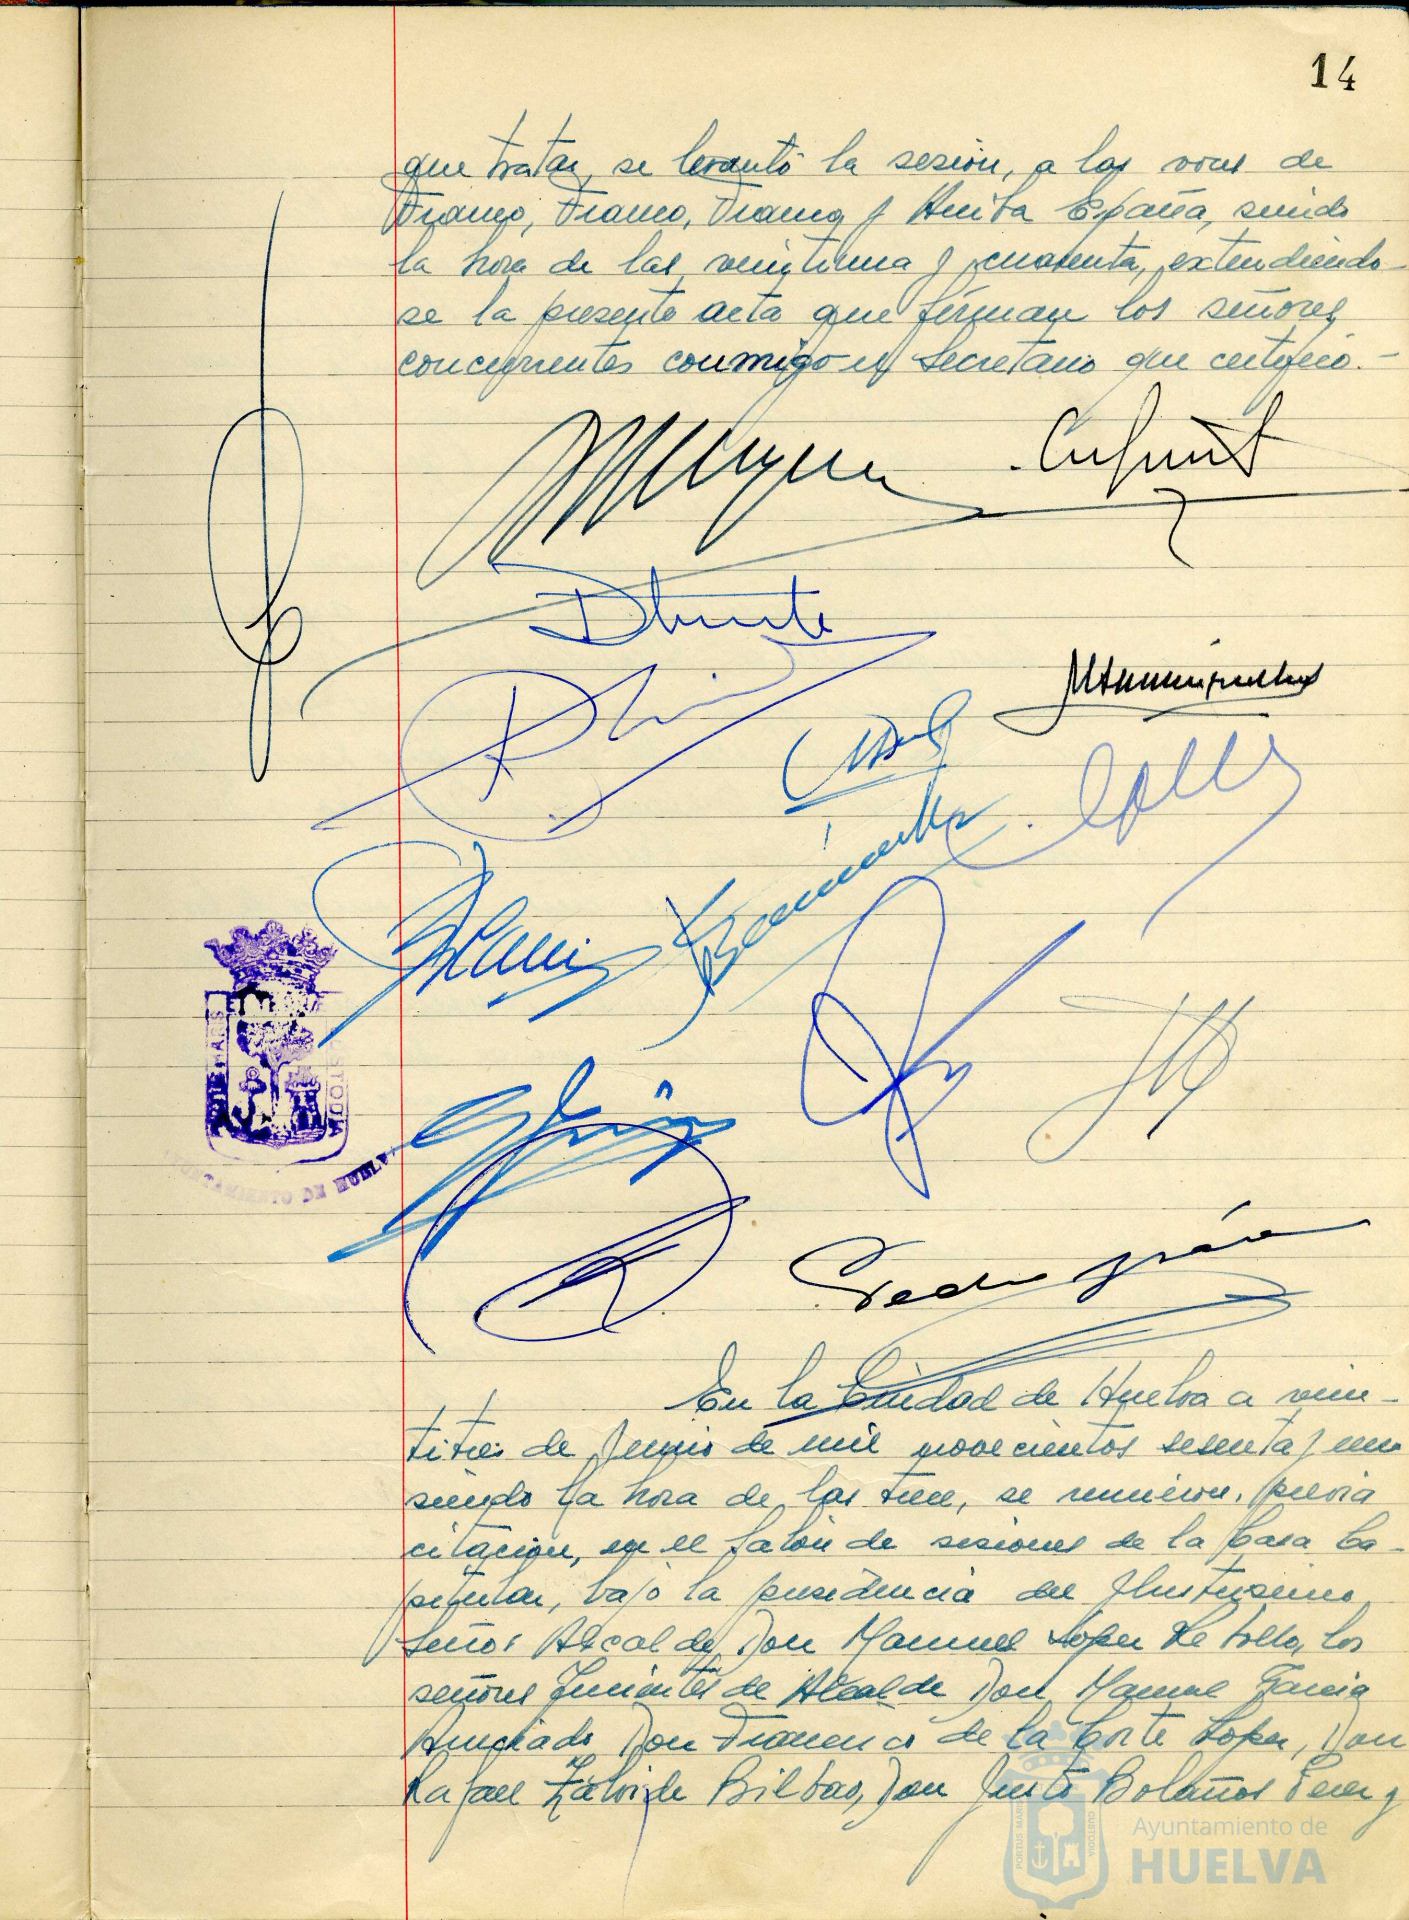 14
que tratar, se levantó la sesión, a las voces de
Franco, Franco, Franco y Arriba España, siendo
la hora de las veintiuna y cuarenta, extendiendo-
se la presente acta que firman los señores
concurrentes conmigo el Secretario que certifico.-
Infante
Duarte
Pedro
AYUNTAMIENTO DE HUELVA
En la Ciudad de Huelva a vein-
titres de Junio de mil novecientos sesenta y uno
siendo la hora de las trece, se reunieron, previa
citación, en el Salón de sesiones de la Casa Ca-
pitular, bajo la presidencia del Ilustrisimo
Señor Alcalde, Don Manuel Lopez Rebollo, los
señores Tenientes de Alcalde Don Manuel Garcia
Don Francisco de la Corte Lopez, Don
Rafael Bilbao, Don Justo Bolaños Perez
PORTUS MARIS CUSTODIA
Ayuntamiento de
HUELVA